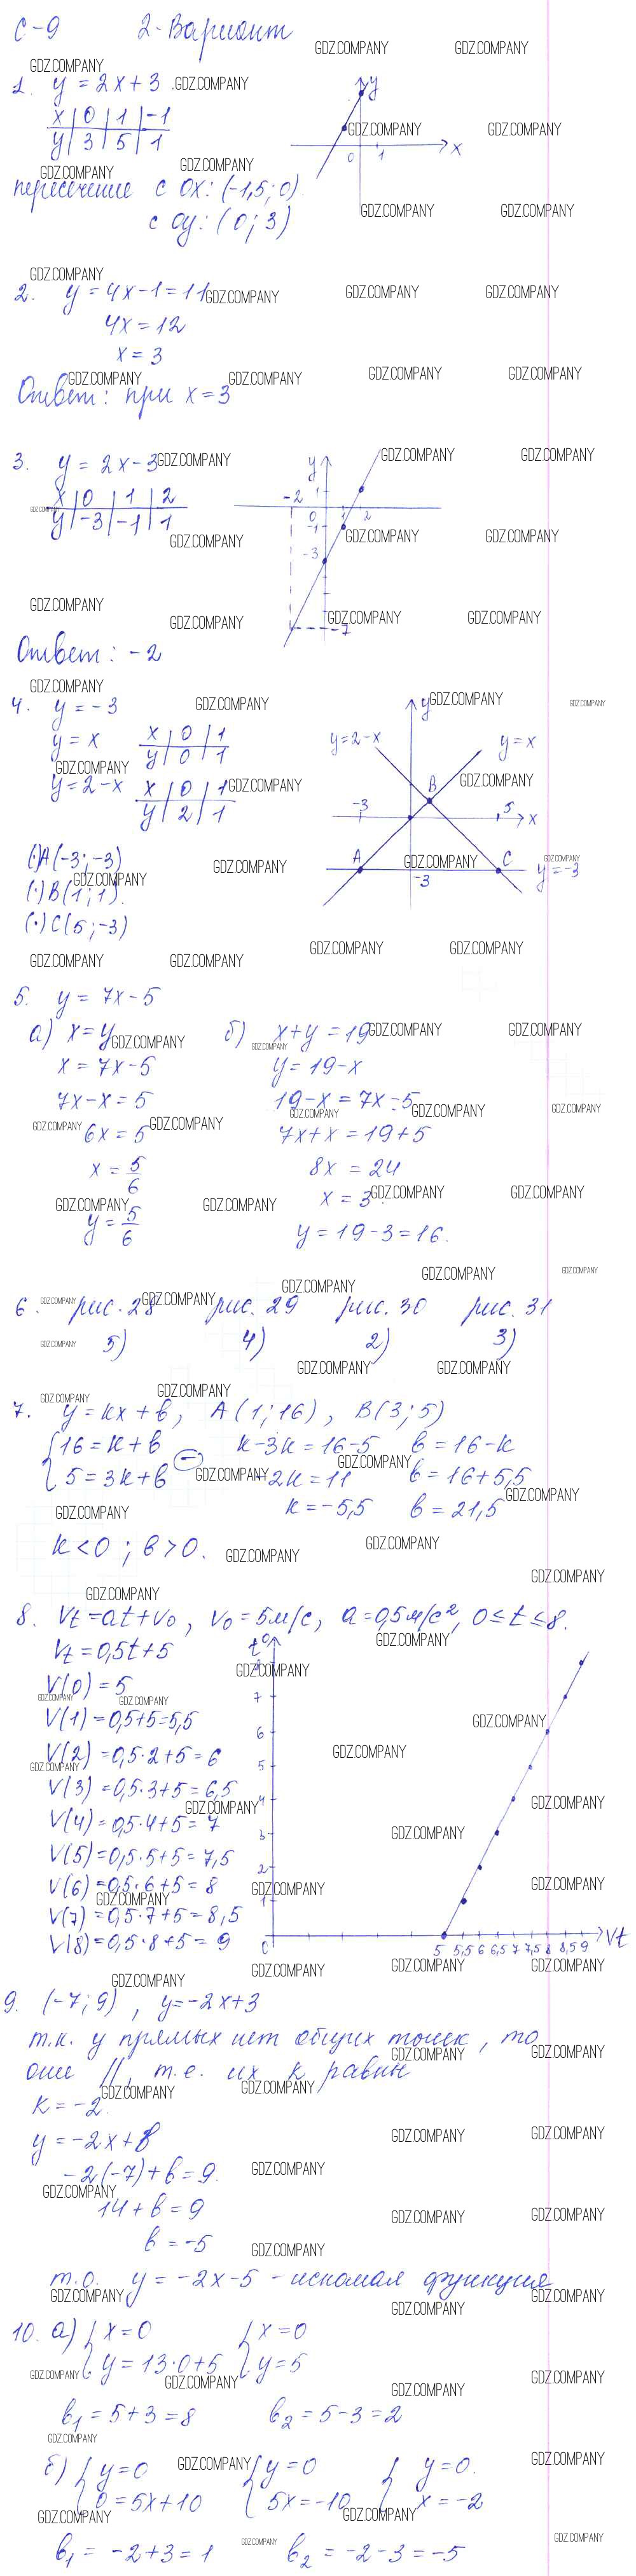 С-9 2-Вариант
1. y = 2x + 3.
x | 0 | 1 | -1
y | 3 | 5 | 1
y
0 1 x
пересечение с OX: (-1,5; 0).
с OY: (0; 3)
2. y = 4x - 1 = 11
4x = 12
x = 3
Ответ: при x = 3
3. y = 2x - 3
x | 0 | 1 | 2
y | -3 | -1 | 1
y
-2 1
0 1 2
-1
-3
-7
Ответ: -2
4. y = -3
y = x
x | 0 | 1
y | 0 | 1
y = 2 - x
x | 0 | 1
y | 2 | 1
y
y=2-x y=x
B
-3 5 x
A C
-3 y=-3
(·)A(-3; -3)
(·)B(1; 1).
(·)C(5; -3)
5. y = 7x - 5
а) x = y
x = 7x - 5
7x - x = 5
6x = 5
x = 5/6
y = 5/6
б) x + y = 19
y = 19 - x
19 - x = 7x - 5
7x + x = 19 + 5
8x = 24
x = 3.
y = 19 - 3 = 16.
6. рис. 28 рис. 29 рис. 30 рис. 31
5) 4) 2) 3)
7. y = kx + b, A(1; 16), B(3; 5)
{16 = k + b
{5 = 3k + b
(-)
k - 3k = 16 - 5 b = 16 - k
-2k = 11 b = 16 + 5,5
k = -5,5 b = 21,5
k < 0; b > 0.
8. Vt = at + V0, V0 = 5м/с, a = 0,5м/с², 0 ≤ t ≤ 8.
Vt = 0,5t + 5
V(0) = 5
V(1) = 0,5 + 5 = 5,5
V(2) = 0,5·2 + 5 = 6
V(3) = 0,5·3 + 5 = 6,5
V(4) = 0,5·4 + 5 = 7
V(5) = 0,5·5 + 5 = 7,5
V(6) = 0,5·6 + 5 = 8
V(7) = 0,5·7 + 5 = 8,5
V(8) = 0,5·8 + 5 = 9
8
7
6
5
4
3
2
1
0 5 5,5 6 6,5 7 7,5 8 8,5 9 Vt
9. (-7; 9), y = -2x + 3
т.к. у прямых нет общих точек, то
они //, т.е. их k равны
k = -2.
y = -2x + b
-2(-7) + b = 9.
14 + b = 9
b = -5
т.о. y = -2x - 5 - искомая функция
10. а) {x = 0 {x = 0
{y = 13·0 + 5 {y = 5
b1 = 5 + 3 = 8 b2 = 5 - 3 = 2
б) {y = 0 {y = 0 {y = 0.
{0 = 5x + 10 {5x = -10 {x = -2
b1 = -2 + 3 = 1 b2 = -2 - 3 = -5
GDZ.COMPANY